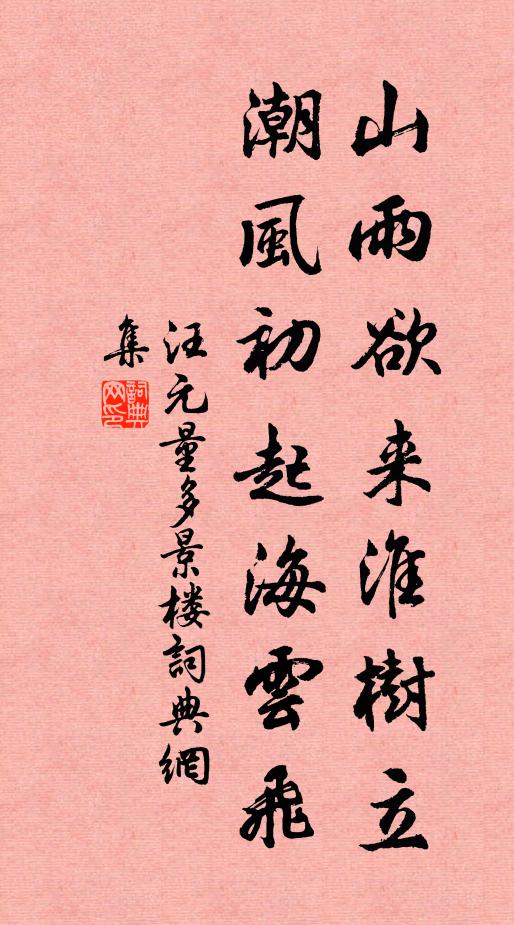 山雨欲来淮樹立
潮風初起海雲飛
汪元量多景楼詞典網
集
詞典網印